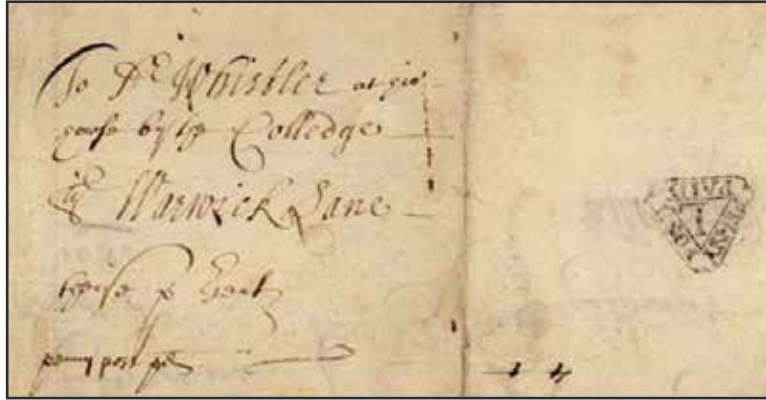 To Dr Whistler at his
house by the Colledge
in Warwick Lane
these p
penny post pd
PENNY POST PAID